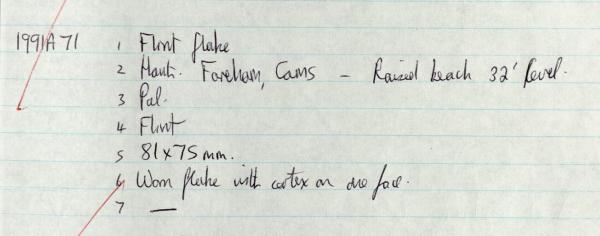 1991A71 1 Flint flake
2 Hants. Fareham, Cams - Raised beach 32' level.
3 Pal.
4 Flint
5 81x75mm.
6 Worn flake with cortex on one face.
7 —